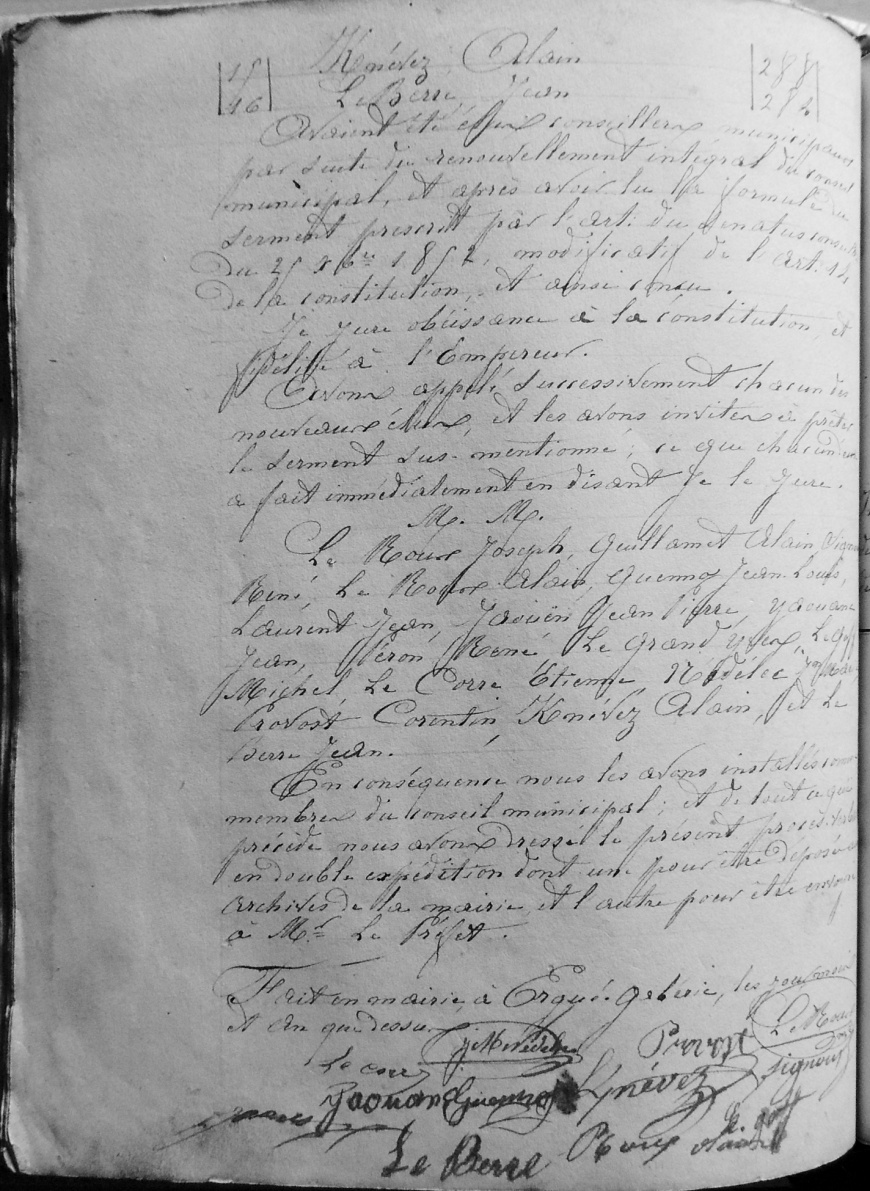 15 Knévez Alain 288
16 Le Berre, Jean 284
Avaient été élus conseillers municipaux
par suite du renouvellement intégral du conseil
municipal, et après avoir lu la formule du
serment prescrit par l'art: du Senatus consulte
Du 25 Xbre 1852, modificatif de l'art: 14
de la constitution, et ainsi conçu.
Je jure obéissance à la constitution, et
fidélité à l'Empereur.
Avons appelé successivement chacun des
nouveaux élus, et les avons invités à prêter
le serment sus-mentionné; ce que chacun
a fait immédiatement en disant Je le jure.
M. M.
Le Roux Joseph, Guillamet Alain
René, Le Roux Alain, Quennog Jean Louis,
Laurent Jean, Jaouën Jean Pierre, Yaouanc
Jean, René Le Grand Yves, Le Goff
Michel, Le Corre Etienne, Nédélec
Provost Corentin, Knévez Alain, et Le
Berre Jean.
En conséquence nous les avons installés comme
membres du conseil municipal; et de tout ce qui
précède nous avons dressé le présent procès-verbal
en double expédition dont une pour être déposée
archives de la mairie et l'autre pour être envoyée
à Mr Le Préfet.
Fait en mairie, à Ergué-Gabéric, les jour mois
et an que dessus.
Le Roux
Provost
Le corre
Yaouanc Knévez
Le Berre Roux